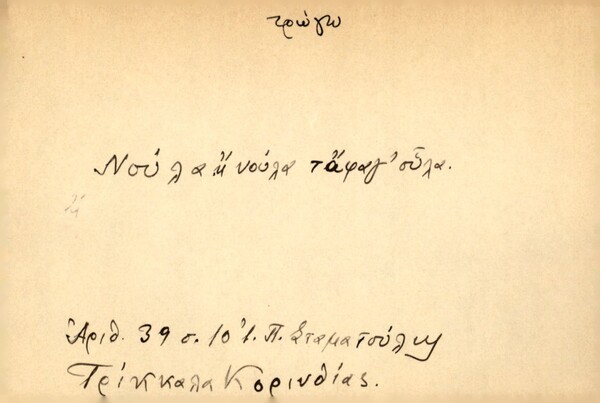 τρώγω
Νούλα κι νούλα τἄφαγ' οὗλα.
Ἀριθ. 39 σ. 10 Ἰ. Π. Σταματούλη
Τρίκκαλα Κορινθίας.